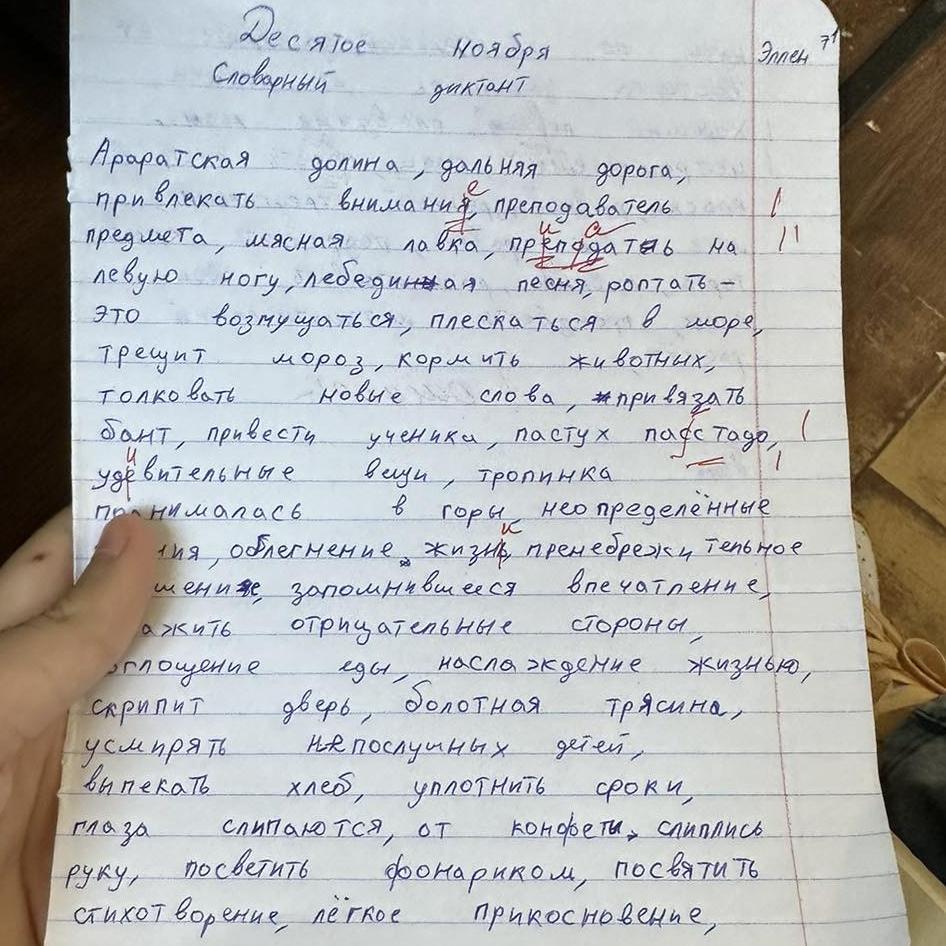 Десятое ноября Эллен 7¹
Словарный диктант
Араратская долина, дальняя дорога,
привлекать внимания, преподаватель
предмета, мясная лавка, препода ть на
левую ногу, лебединая песня, роптать –
это возмущаться, плескаться в море,
трещит мороз, кормить животных,
толковать новые слова, привязать
бант, привести ученика, пастух пасстадо,
удевительные вещи, тропинка
нималась в горы, неопределённые
ния, облегнение, жизнь, пренебрежительное
шение, запомнившееся впечатление,
ажить отрицательные стороны,
оглощение еды, наслаждение жизнью,
скрипит дверь, болотная трясина,
усмирять непослушных детей,
выпекать хлеб, уплотнить сроки,
глаза слипаются, от конфеты, слиплись
руку, посветить фонариком, посвятить
стихотворение, лёгкое прикосновение,